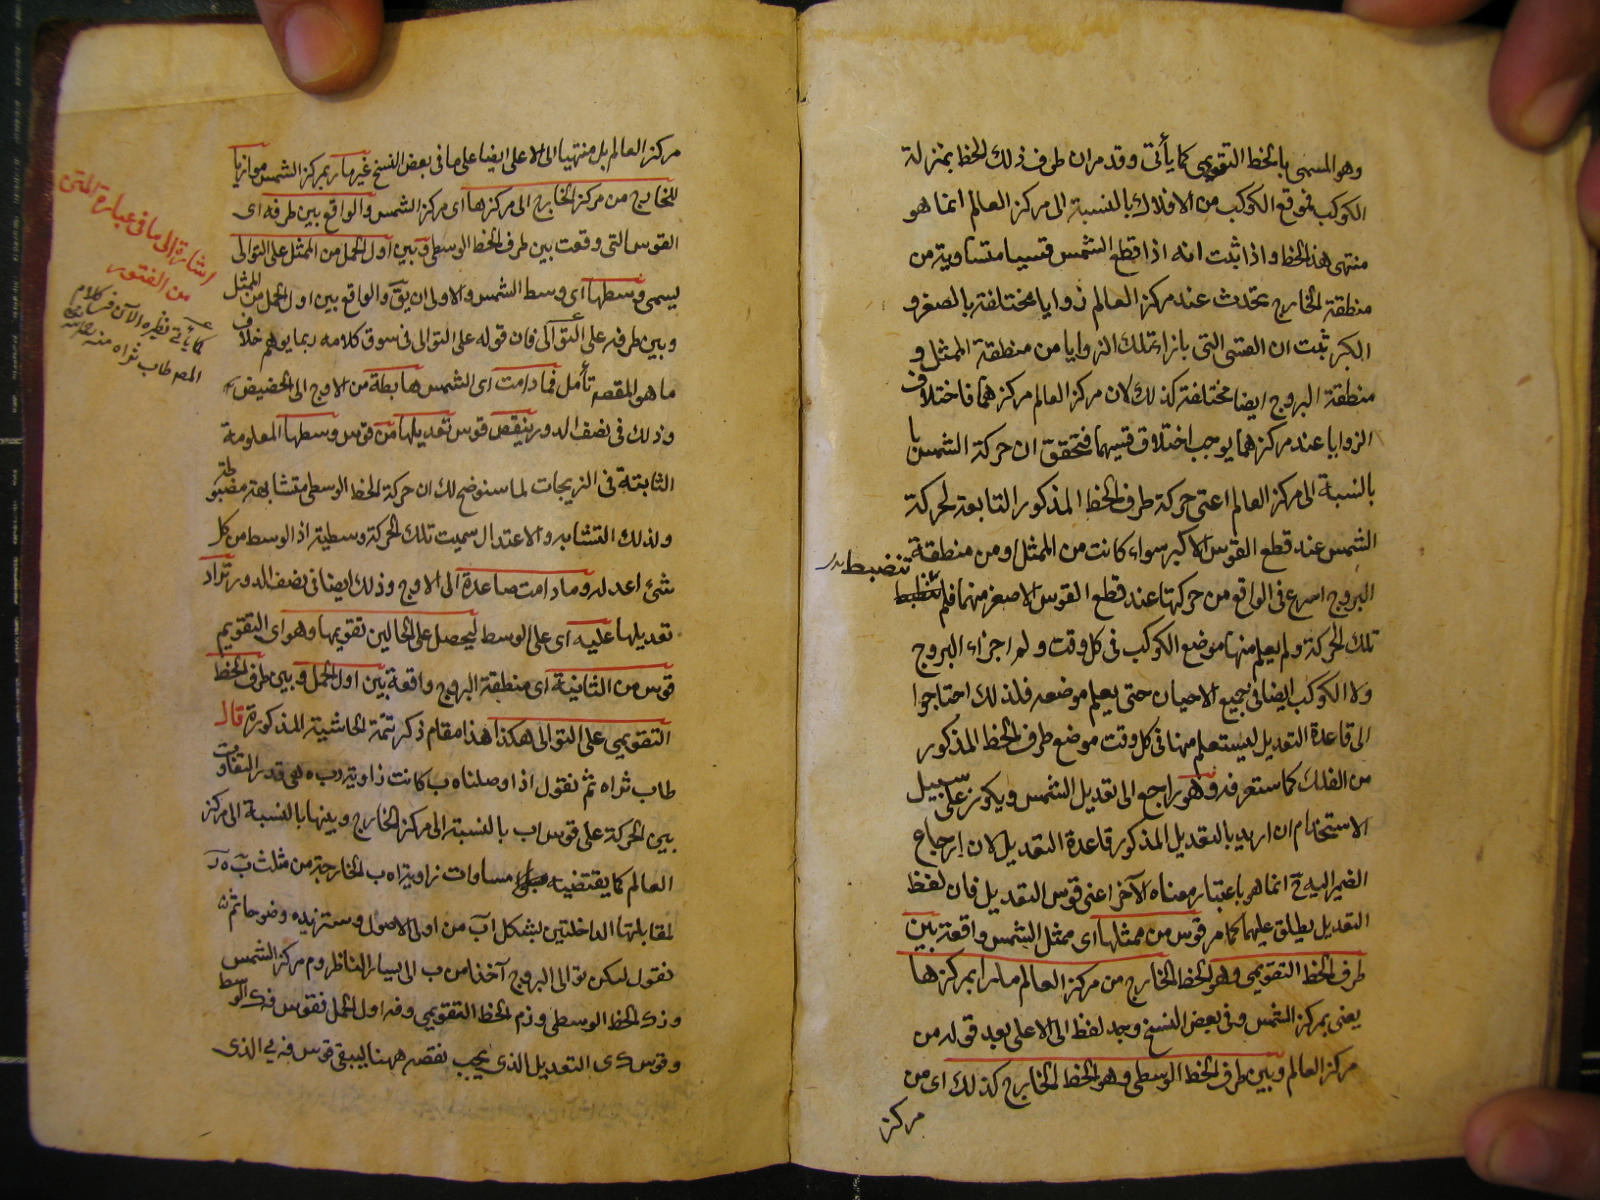 وهو المسمى بالخط التقويمي كما يأتي وقد مر ان طرف ذلك الخط بمنزلة
الكوكب فموقع الكوكب من الافلاك بالنسبة الى مركز العالم انما هو
منتهى هذا الخط واذا ثبت انه اذا قطع الشمس قسيا متساوية من
منطقة الخارج يحدث عند مركز العالم زوايا مختلفة بالصغر و
الكبر ثبت ان القسى التى بازاء تلك الزوايا من منطقة الممثل و
منطقة البروج ايضا مختلفة كذلك لان مركز العالم مركزهما فاختلاف
الزوايا عند مركزهما يوجب اختلاف قسيهما فتحقق ان حركة الشمس
بالنسبة الى مركز العالم اعنى حركة طرف الخط المذكور التابعة لحركة
الشمس عند قطع القوس الاكبر سواء كانت من الممثل او من منطقة
تنضبط
البروج اسرع فى الواقع من حركتها عند قطع القوس الاصغر منهما فلم
تلك الحركة ولم يعلم منها موضع الكوكب فى كل وقت ولم اجزاء البروج
ولا الكوكب ايضا فى جميع الاحيان حتى يعلم موضعه فلذلك احتاجوا
الى قاعدة التعديل ليستعلم منها فى كل وقت موضع طرف الخط المذكور
من الفلك كما ستعرفه وهو راجع الى تعديل الشمس ويكون على سبيل
الاستخدام ان اريد بالتعديل المذكور قاعدة التعديل لان ارجاع
الضمير اليه ح انما هو باعتبار معناه الآخر اعنى قوس التعديل فان لفظ
التعديل يطلق عليهما كما مر قوس من ممثلها اى ممثل الشمس واقعة بين
طرف الخط التقويمي وهو الخط الخارج من مركز العالم مارا بمركزها
يعنى بمركز الشمس وفى بعض النسخ وجد لفظ الى الاعلى بعد قوله من
مركز العالم وبين طرف الخط الوسطى وهو الخط الخارج كذلك اى من
مركز
مركز العالم بل منتهيا الى الاعلى ايضا على ما فى بعض النسخ غير مار بمركز الشمس موازيا
للخارج من مركز الخارج الى مركزها اى مركز الشمس والواقع بين طرفه اى
القوس التى وقعت بين طرف الخط الوسطى وبين اول الحمل من الممثل على التوالى
يسمى وسطها اى وسط الشمس والاولى ان يق والواقع بين اول الحمل من الممثل
وبين طرفه على التوالى فان قوله على التوالى فى سوق كلامه ربما يوهم خلاف
ما هو المقصو تأمل فما دامت اى الشمس هابطة من الاوج الى الحضيض
وذلك فى نصف الدور ينقص قوس تعديلها من قوس وسطها المعلومة
الثابتة فى الزيجات لما سنوضح لك ان حركة الخط الوسطى متشابهة مضبوطة
ولذلك التشابه والاعتدال سميت تلك الحركة وسطية اذ الوسط من كل
شئ اعدله وما دامت صاعدة الى الاوج وذلك ايضا فى نصف الدور تزاد
تعديلها عليه اى على الوسط ليحصل على الحالين تقويمها وهو اى التقويم
قوس من الثانية اى منطقة البروج واقعة بين اول الحمل وبين طرف الخط
التقويمي على التوالى هكذا هذا مقام ذكر تتمة الحاشية المذكورة قال
طاب ثراه ثم نقول اذا وصلنا ه ب كانت زاوية ر ب ه هى قدر التفاوت
بين الحركة على قوس ا ب بالنسبة الى مركز الخارج وبينها بالنسبة الى مركز
العالم كما يقتضيه مساوات زاوية ا ه ب الخارجة من مثلث ب ه ر
لمقابلتها الداخلتين بشكل آب من اولى الاصول وستزيده وضوحا ثم
نقول ليكن توالى البروج آخذا من ب الى يسار الناظر و م مركز الشمس
و الخط الوسطى و الخط التقويمي و اول الحمل فقوس الوسط
وقوس التعديل الذى يجب نقصه ههنا ليبقى قوس الذى
اشارة الى ما فى عبارة المتن
من الفتور
كما يأتى نظيره الآن فى كلام
المص طاب ثراه منه